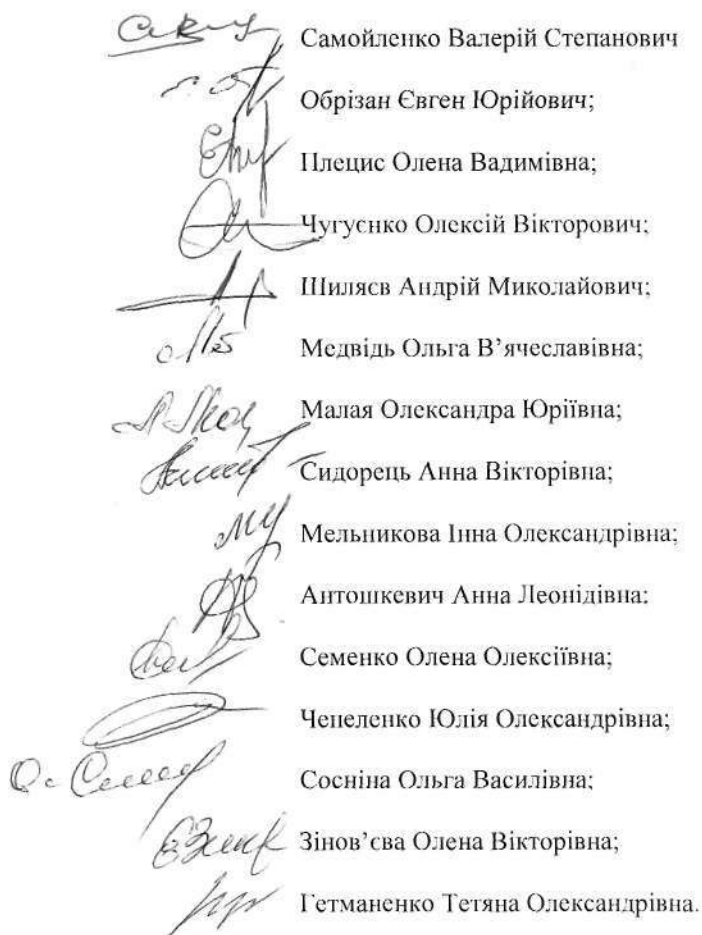 Самойленко Валерій Степанович
Обрізан Євген Юрійович;
Плецис Олена Вадимівна;
Чугуєнко Олексій Вікторович;
Шиляєв Андрій Миколайович;
Медвідь Ольга В'ячеславівна;
Малая Олександра Юріївна;
Сидорець Анна Вікторівна;
Мельникова Інна Олександрівна;
Антошкевич Анна Леонідівна;
Семенко Олена Олексіївна;
Чепеленко Юлія Олександрівна;
Сосніна Ольга Василівна;
Зінов'єва Олена Вікторівна;
Гетманенко Тетяна Олександрівна.